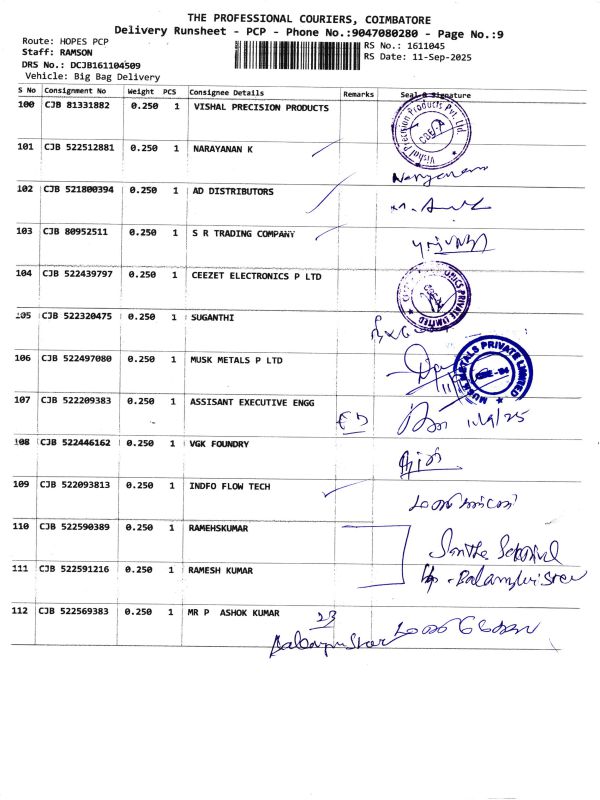 THE PROFESSIONAL COURIERS, COIMBATORE
Delivery Runsheet - PCP - Phone No.:9047080280 - Page No.:9
Route: HOPES PCP
RS No.: 1611045
Staff: RAMSON
RS Date: 11-Sep-2025
DRS No.: DCJB161104509
Vehicle: Big Bag Delivery
S No Consignment No Weight PCS Consignee Details Remarks Seal & Signature
100 CJB 81331882 0.250 1 VISHAL PRECISION PRODUCTS
Vishal Precision Products Pvt. Ltd
101 CJB 522512881 0.250 1 NARAYANAN K
102 CJB 521800394 0.250 1 AD DISTRIBUTORS
103 CJB 80952511 0.250 1 S R TRADING COMPANY
104 CJB 522439797 0.250 1 CEEZET ELECTRONICS P LTD
PRIVATE LIMITED
105 CJB 522320475 0.250 1 SUGANTHI
106 CJB 522497080 0.250 1 MUSK METALS P LTD
MUSK METALS PRIVATE LIMITED
107 CJB 522209383 0.250 1 ASSISANT EXECUTIVE ENGG
11/9/25
108 CJB 522446162 0.250 1 VGK FOUNDRY
109 CJB 522093813 0.250 1 INDFO FLOW TECH
110 CJB 522590389 0.250 1 RAMEHSKUMAR
111 CJB 522591216 0.250 1 RAMESH KUMAR
112 CJB 522569383 0.250 1 MR P ASHOK KUMAR
23